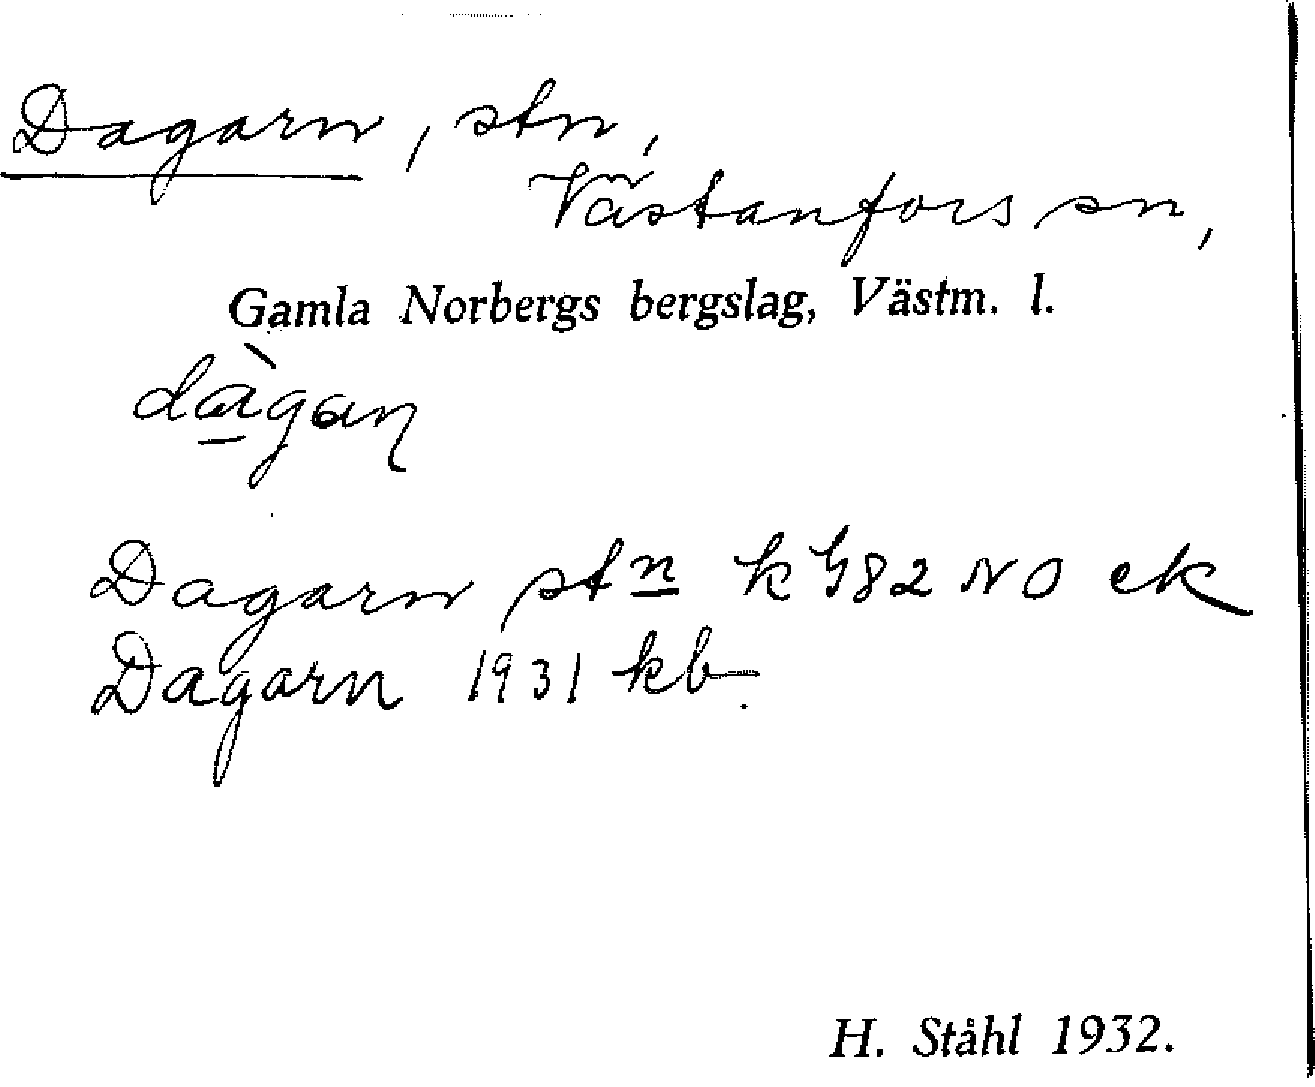 Dagarn, stn,
Västanfors sn,
Gamla Norbergs bergslag, Västm. l.
dàgaɳ
Dagarn stn k G82 NO ek
Dagarn 1931 kb.
H. Ståhl 1932.